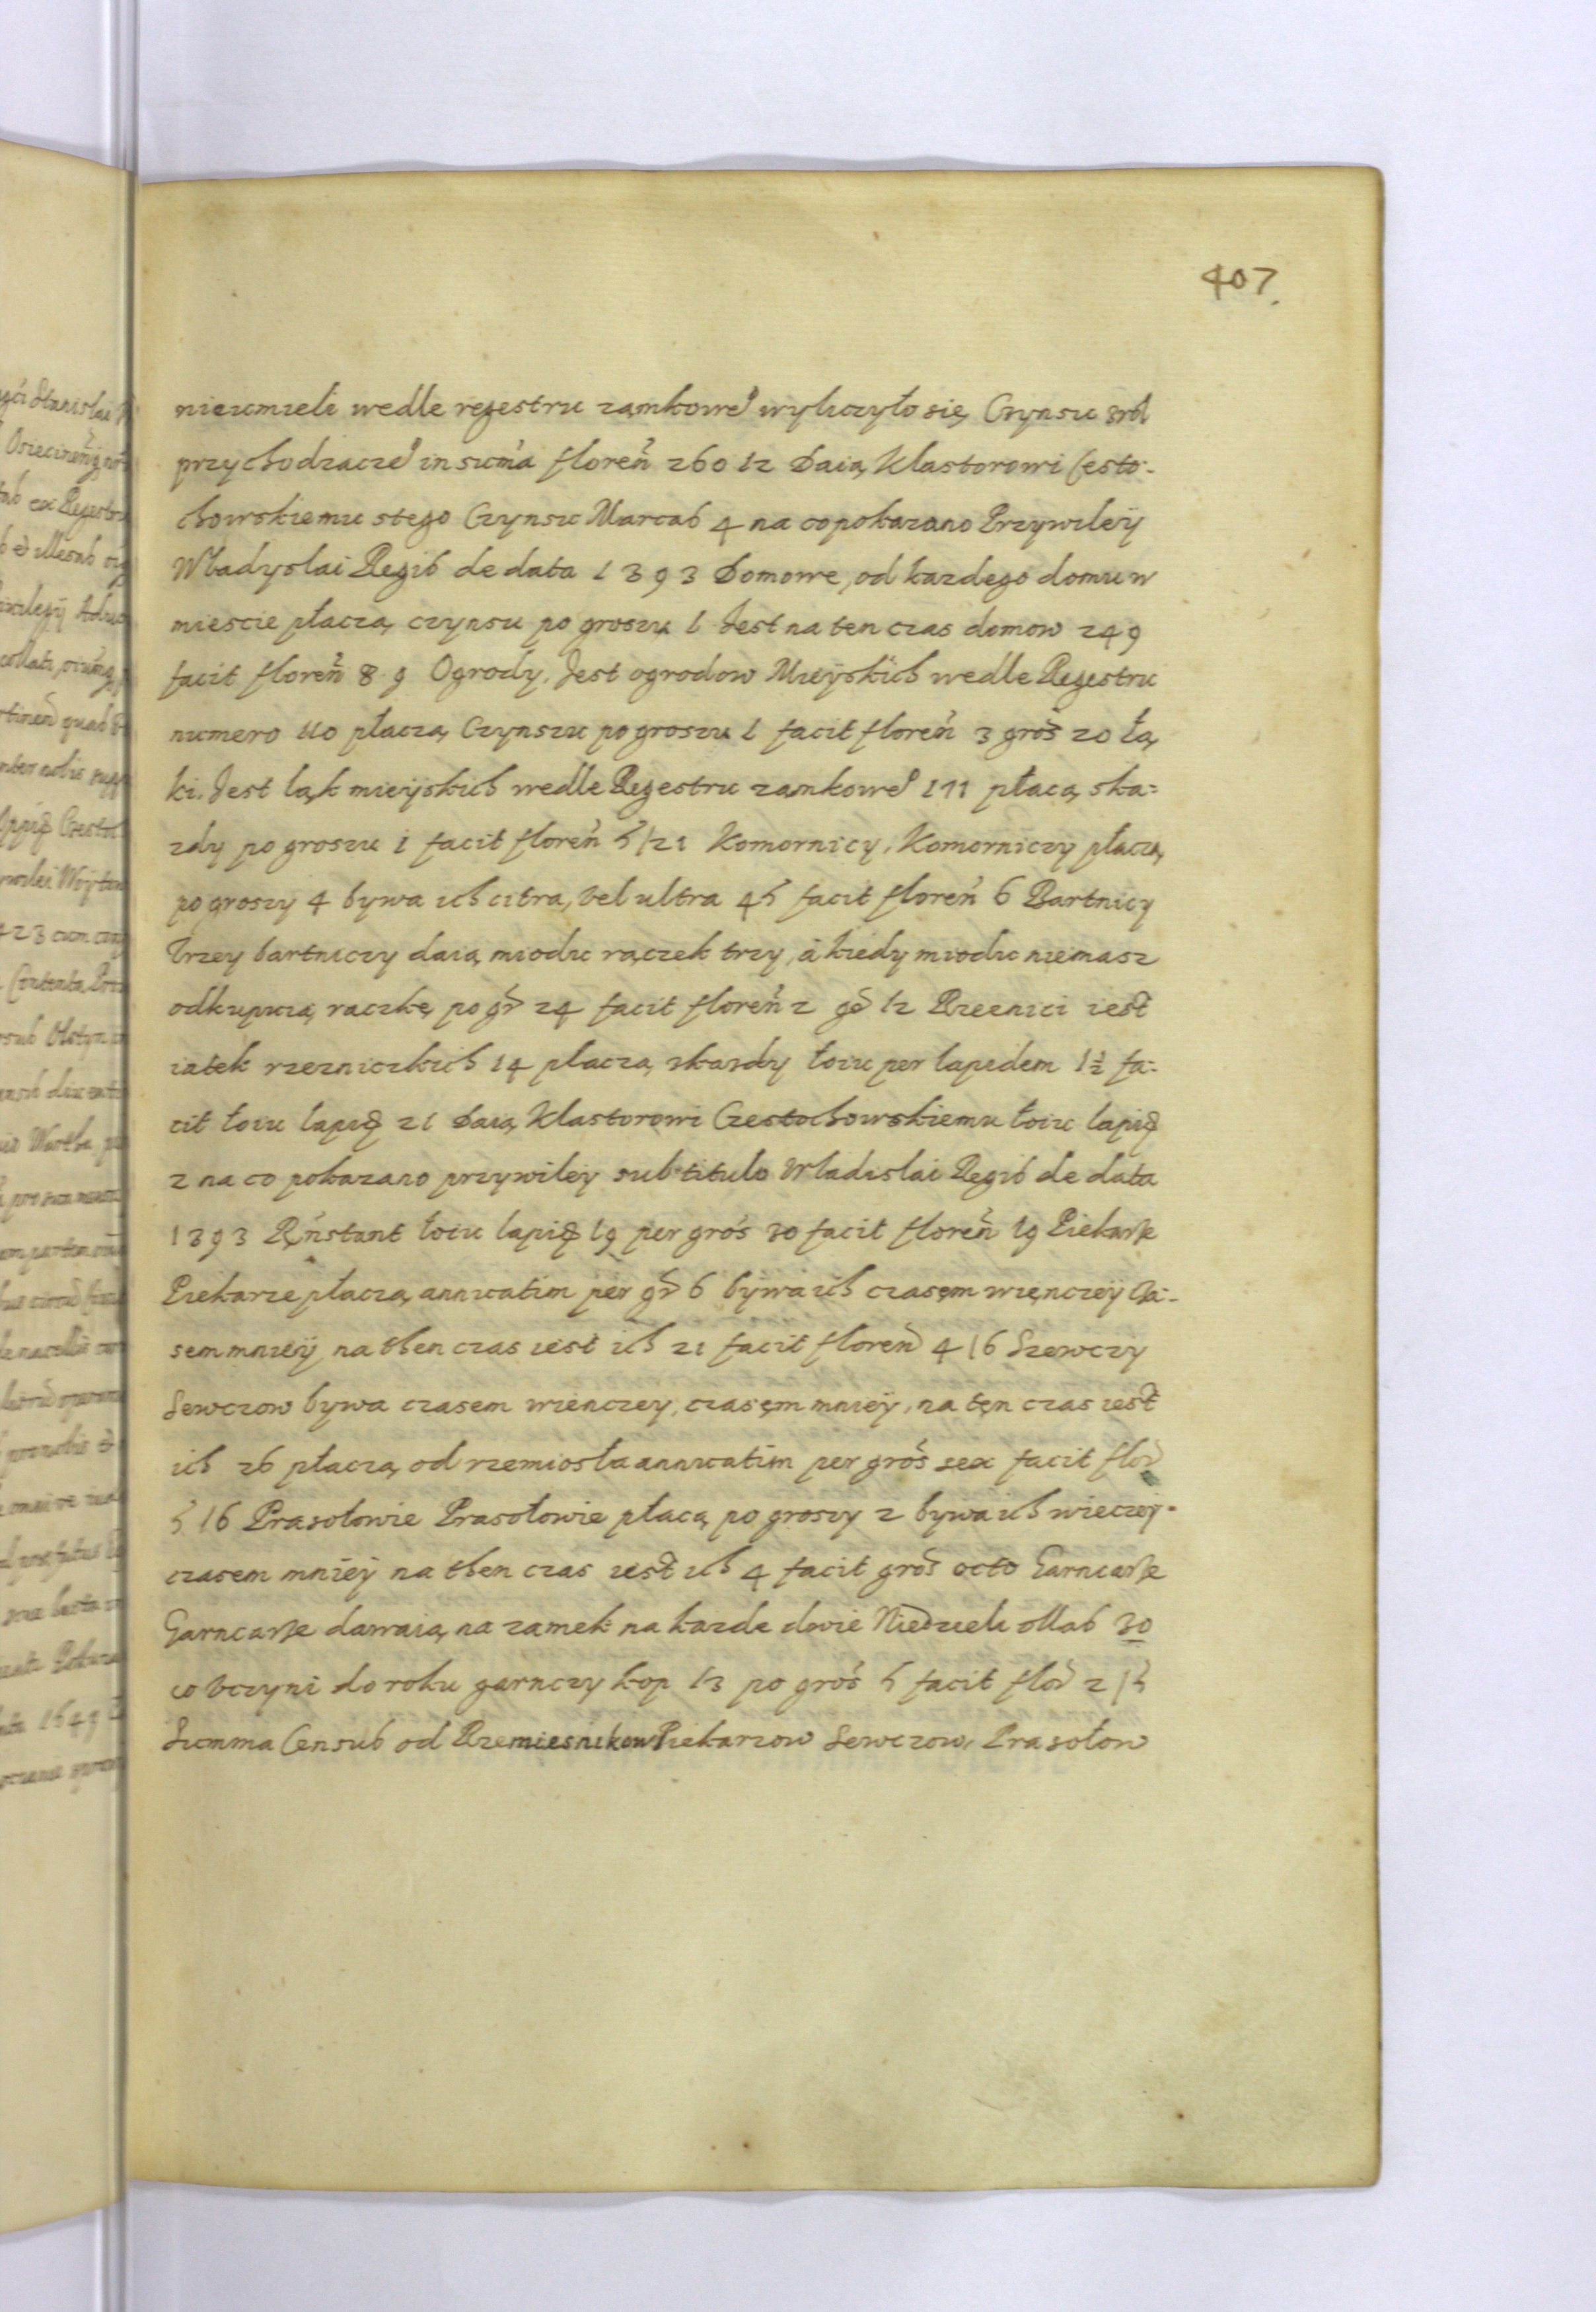 407.
nieumieli wedle regestru zamkowe° wyliczyło się Czynsu zról
przychodzącze° in suma floren 260 12 Daią Klastorowi Cesto-
chowskiemu stego Czynsu Marcas 4 na co pokazano Przywiley
Władyslai Regis de data 1393 Domowe, od kazdego domu w
miescie płaczą czynsu po groszu 1 Jest na ten czas domow 249
facit floren 8 9 Ogrody. Jest ogrodow Mieyskich wedle Regestru
numero 110 płaczą Czynszu po groszu 1 facit floren 3 gros 20 Łą
ki. Jest ląk mieyskich wedle Regestru zamkowe° 171 płacą ska=
zdy po groszu 1 facit floren 5/21 Komornicy. Komorniczy płaczą
po groszy 4 bywa ich citra, vel ultra 45 facit floren 6 Bartnicy
Trzey bartniczy daią miodu rączek trzy, a kiedy miodu niemasz
odkupuią raczkę po gr 24 facit floren 2 gr 12 Rzeznici iest
iatek rzezniczkich 14 placzą skazdy łoiu per lapidem 1½ fa-
cit łoiu lapid 21 Daią Klastorowi Czestochowskiemu łoiu lapid
2 na co pokazano przywiley sub titulo Wladislai Regis de data
1393 Rnstant łoiu lapid 19 per gros 30 facit floren 19 Piekarze
Piekarze płaczą annuatim per gr 6 bywa ich czasem więnczey Cza-
sem mniey na then czas iest ich 21 facit floren 4 /6 Szewczy
Sewczow bywa czasem wienczey, czasem mniey, na ten czas iest
ich 26 płaczą od rzemiosła annuatim per gros sex facit flor
5 /6 Prasołowie Prasołowie płacą po groszy 2 bywa ich wieczey
czasem mniey na then czas iest ich 4 facit gros octo Garncarze
Garncarze dawaią na zamek na kazde dwie Niedzieli ollas 30
co vczyni do roku garnczy kop 13 po gros 5 facit flor 2 /5
Summa Census od Rzemiesnikow Piekarzow Sewczow, Prasołow